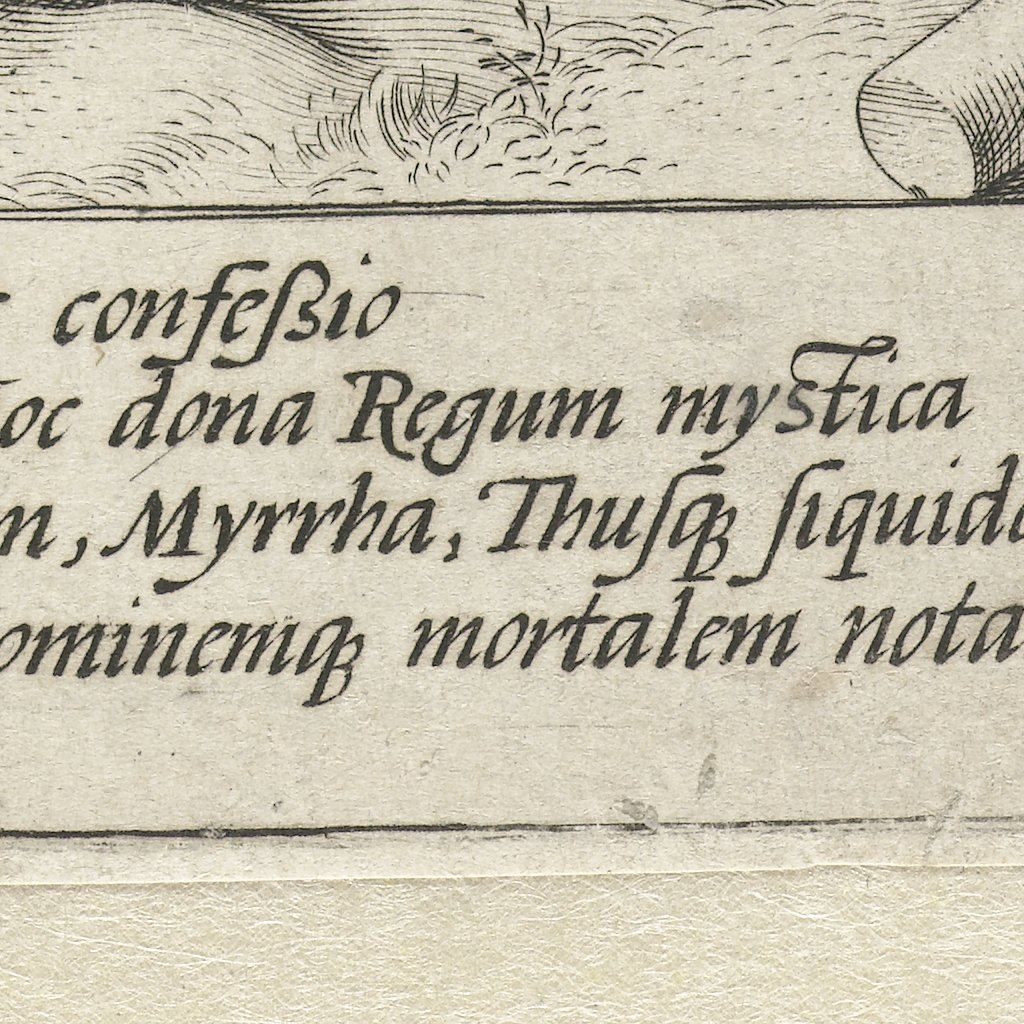 confeßio
oc dona Regum mystica
n, Myrrha, Thusq; siquida
ominemq; mortalem nota